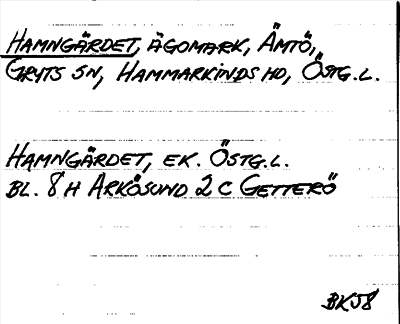 HAMNGÄRDET, ÄGOMARK, ÄMTÖ,
GRYTS SN, HAMMARKINDS HD, ÖSTG.L.
HAMNGÄRDET, EK. ÖSTG.L.
BL. 8 H ARKÖSUND 2 C GETTERÖ
BK58